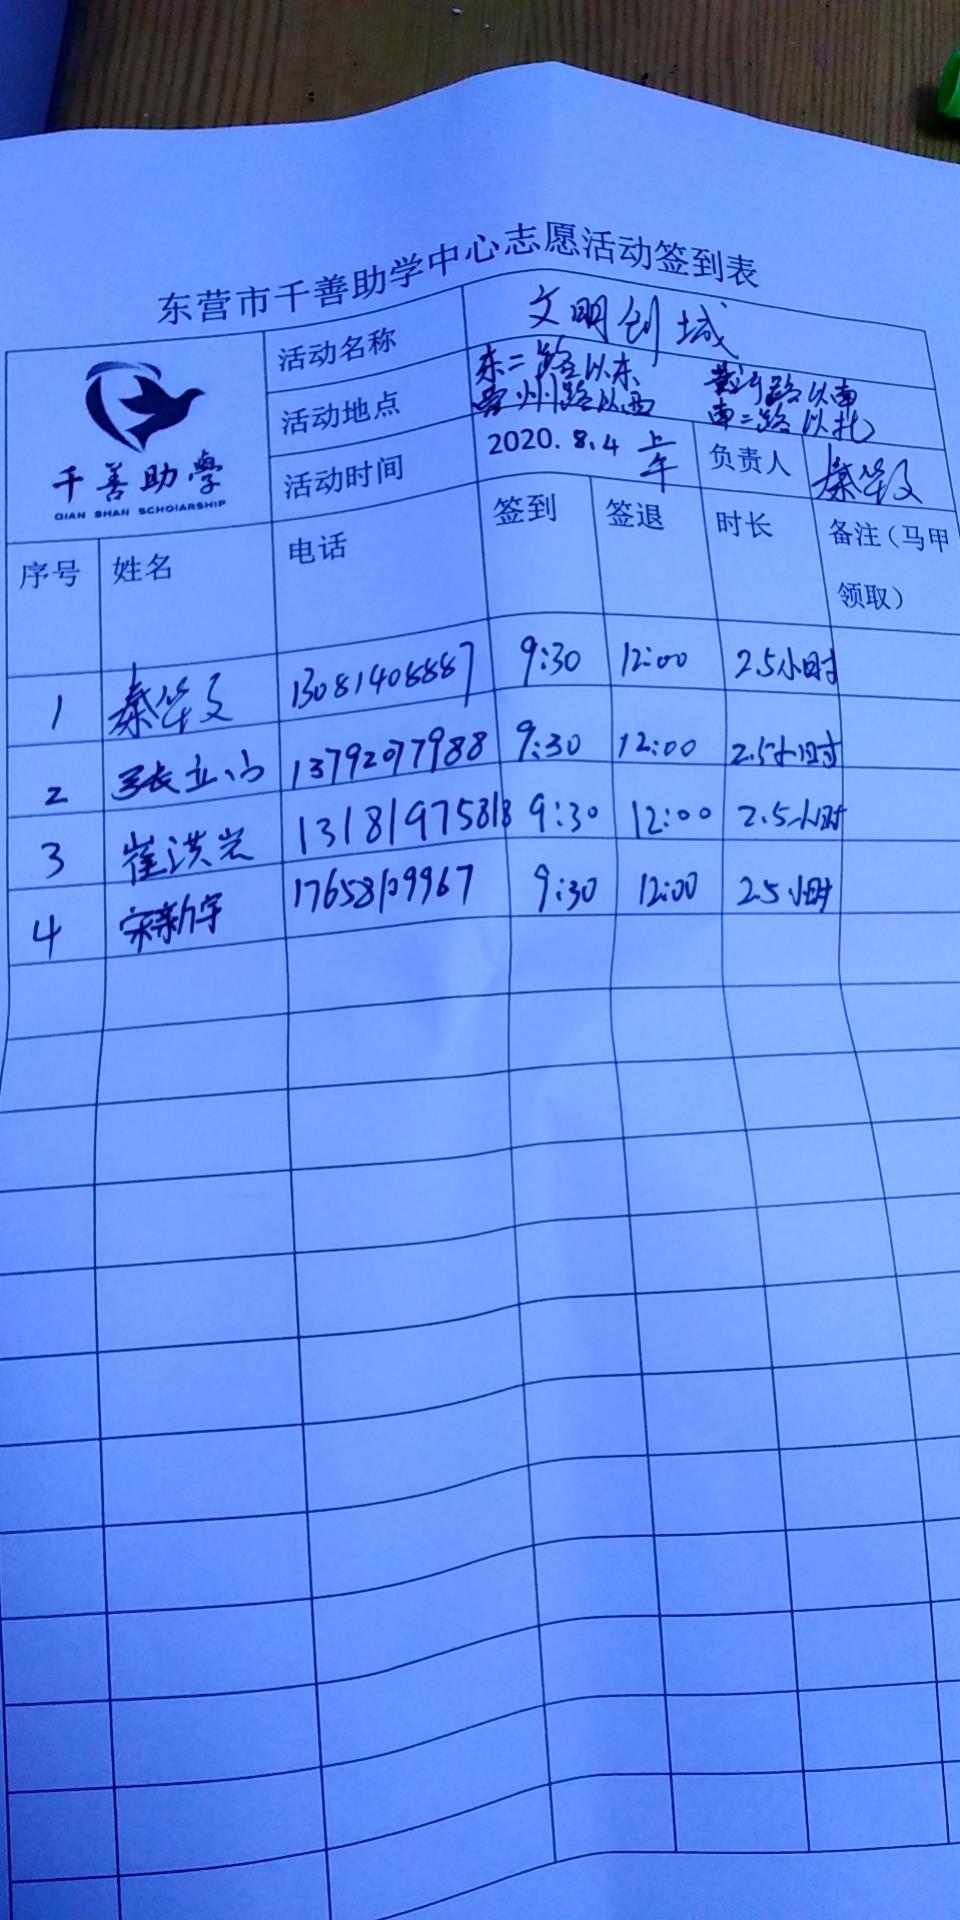 东营市千善助学中心志愿活动签到表
千善助學
QIAN SHAN SCHOlARSHIP
活动名称 文明创城
活动地点 东二路以东 黄河路以南
州路以西 南二路以北
活动时间 2020.8.4 上午 负责人 秦华文
序号 姓名 电话 签到 签退 时长 备注（马甲领取）
1 秦华文 13081408887 9:30 12:00 2.5小时
2 张立 13792077988 9:30 12:00 2.5小时
3 崔洪岩 13181975818 9:30 12:00 2.5小时
4 宋新宇 17658109967 9:30 12:00 2.5小时